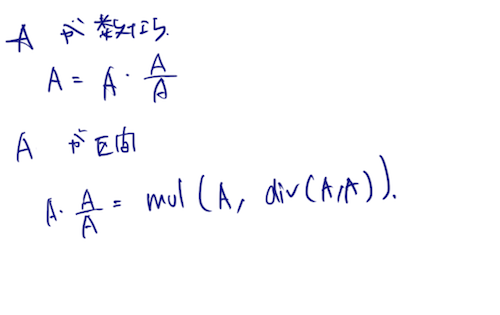 A が数なら.
A = A · A/A
A が区間
A · A/A = mul(A, div(A,A)).